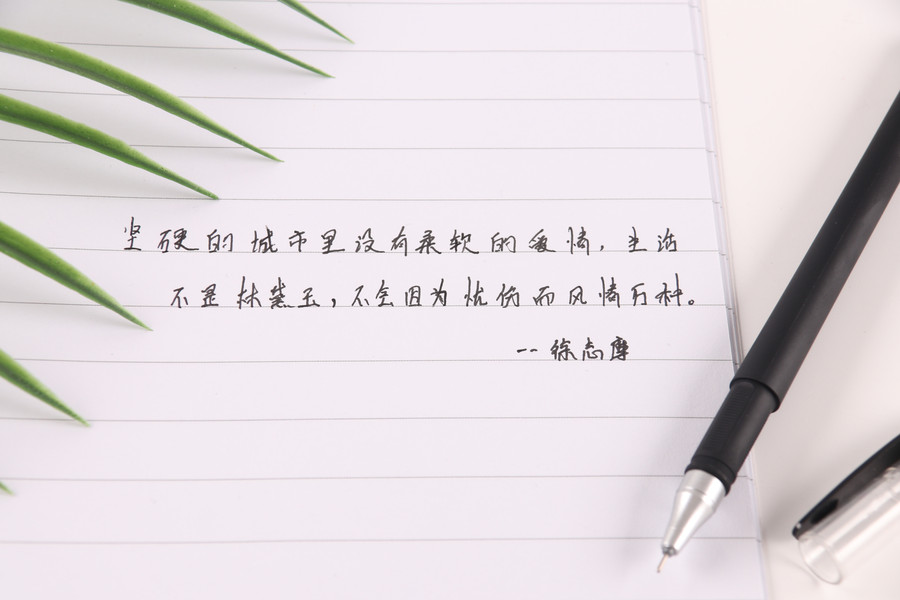 坚硬的城市里没有柔软的爱情,生活
不是林黛玉,不会因为忧伤而风情万种。
--徐志摩